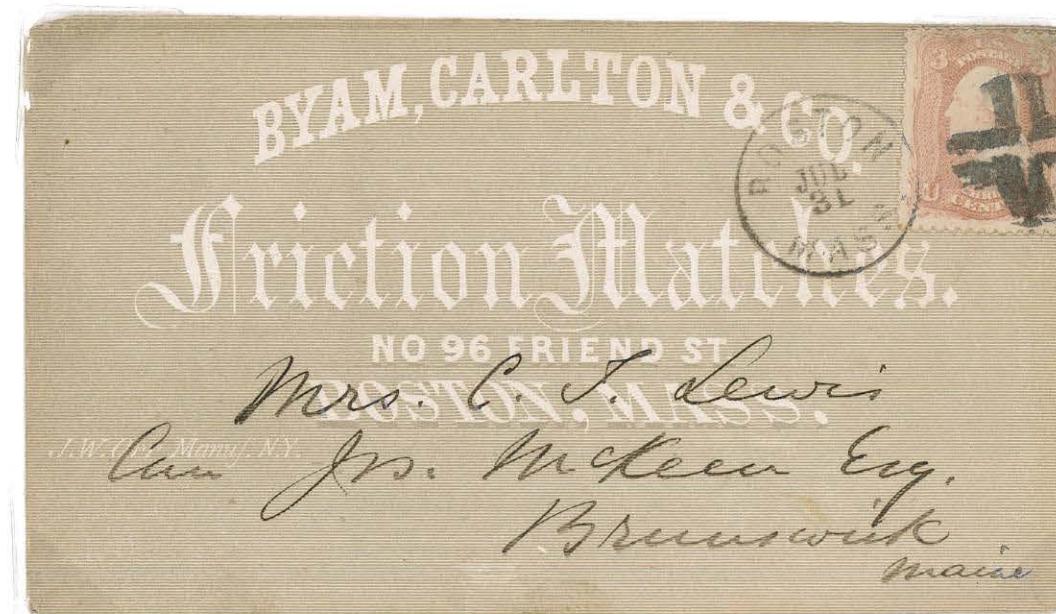 BYAM, CARLTON & CO.
Friction Matches.
NO 96 FRIEND ST
BOSTON, MASS.
J.W. Manuf. N.Y.
BOSTON
JUL
31
MASS
3 U.S. 3
POSTAGE
CENTS
Mrs. C. T. Lewis
Care Jos. McKeen Esq.
Brunswick
Maine